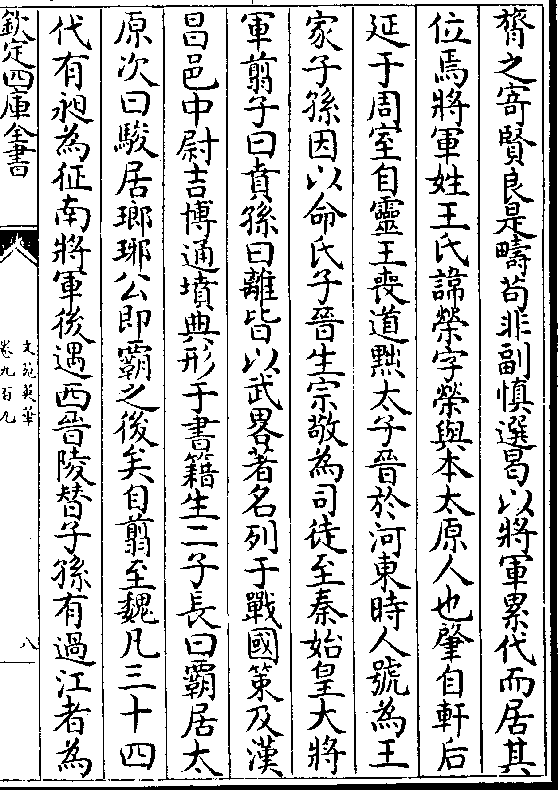 膂之寄賢良是疇茍非副慎選曷以將軍累代而居其
位焉將軍姓王氏諱榮字榮與本太原人也肇自軒后
延于周室自靈王喪道黜太子晉於河東時人號為王
家子孫因以命氏子晉生宗敬為司徒至秦始皇大將
軍翦子曰賁孫曰離皆以武畧著名列于戰國策及漢
昌邑中尉吉博通墳典形于書籍生二子長曰霸居太
原次曰駿居瑯琊公即霸之後矣自翦至魏凡三十四
代有昶為征南將軍後遇西晉陵替子孫有過江者為
欽定四庫全書
文苑英華
卷九百九
八